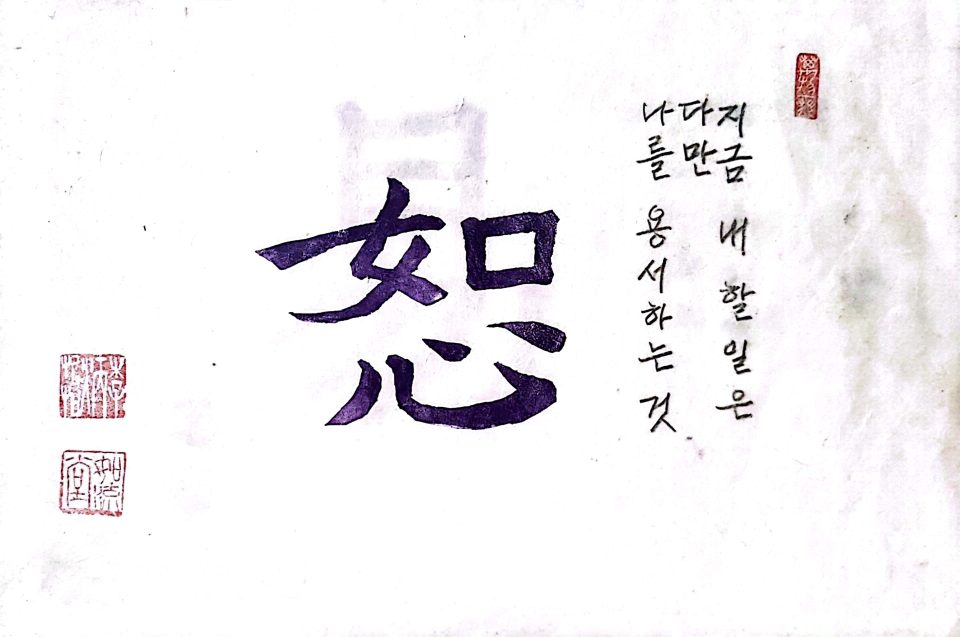 지금 내 할 일은
다만
나를 용서하는 것
恕